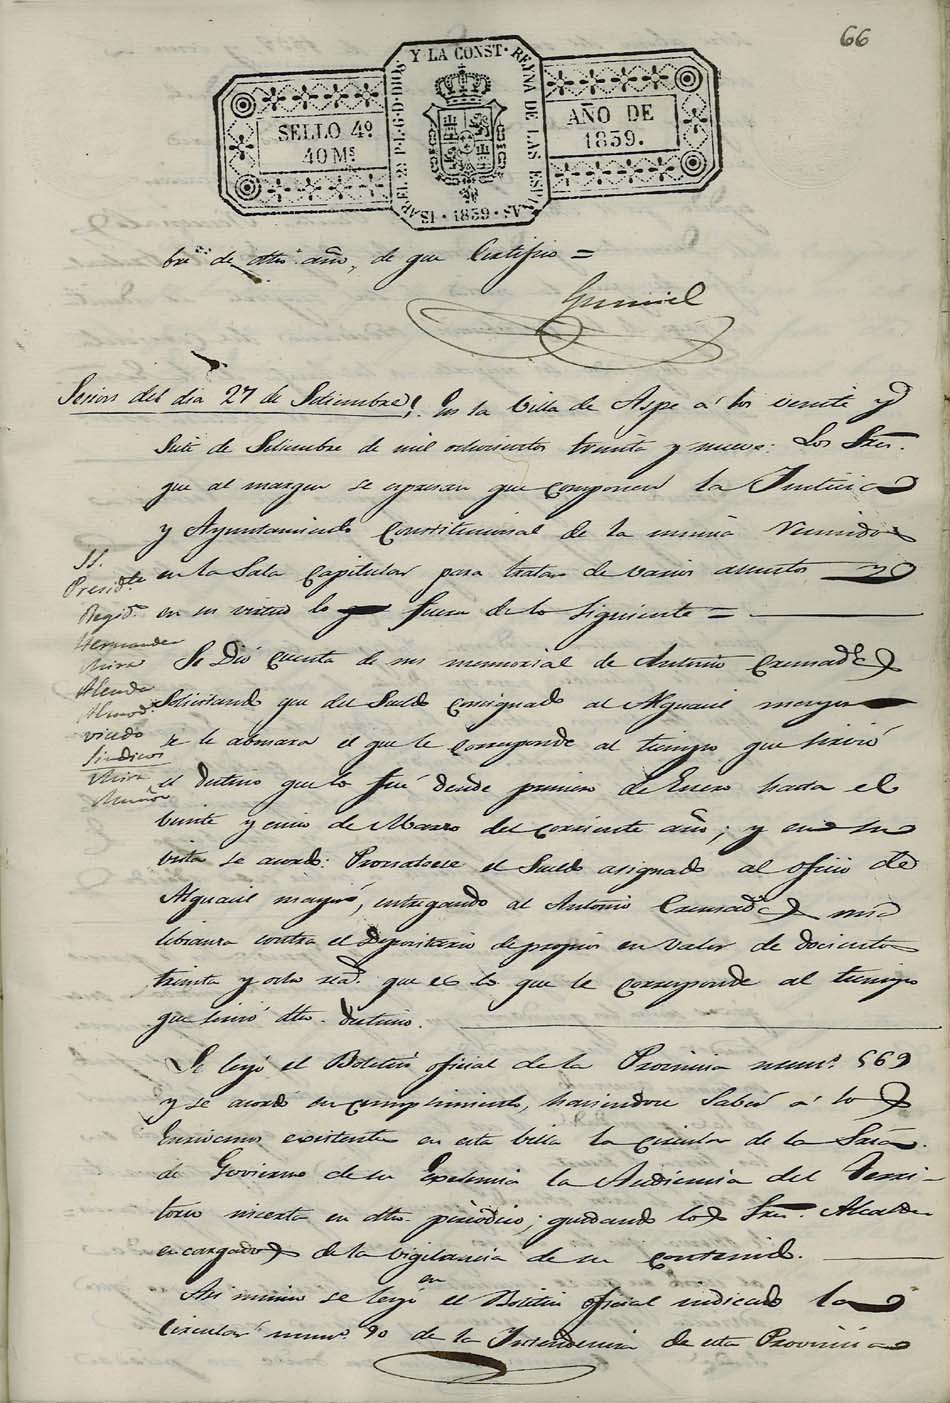 66
SELLO 4º
40 Mˢ
ISABEL 2ª P. L. G. D. DIOS Y LA CONST. REYNA DE LAS ESPAÑAS
· 1839 ·
AÑO DE
1839.
bre de dho. año, de que Certifico =
Gumiel
Sesion del dia 27 de Setiembre. En la Villa de Aspe á los veinte y
Siete de Setiembre de mil ochocientos treinta y nueve: Los Sres.
que al margen se espresan que componen la Justicia
y Ayuntamiento Constitucional de la misma reunidos
en la Sala Capitular para tratar de varios asuntos y
en su virtud lo fueron de lo siguiente =
SS.
Presidte
Regids.
Hernandez
Mira
Alenda
Almod.
viudo
Sindicos
Mira
Muñoz
Se Dió cuenta de un memorial de Antonio
Solicitando que del Sueldo consignado al Alguacil mayor
se le abonara el que le corresponde al tiempo que sirvió
el destino que lo fué desde primero de Enero hasta el
veinte y cinco de Marzo del corriente año; y en su
vista se acordó: Prorratearse el Sueldo asignado al oficio de
Alguacil mayor, entregando al Antonio una
libranza contra el Depositario de propios en valor de doscientos
treinta y ocho reas. que es lo que le corresponde al tiempo
que sirvió dho. destino.
Se leyó el Boletin oficial de la Provincia numº. 569
y se acordó su cumplimiento, haciendose Saber á los
Escrivanos existentes en esta villa la circular de la Sria.
de Govierno de su Exelencia la Audiencia del Terri-
torio inserta en dho. periodico; quedando los Sres. Alcaldes
encargados de la vigilancia de su contenido.
Asi mismo se leyó en el Boletin oficial indicado la
Circular numº. 90 de la Intendencia de esta Provincia